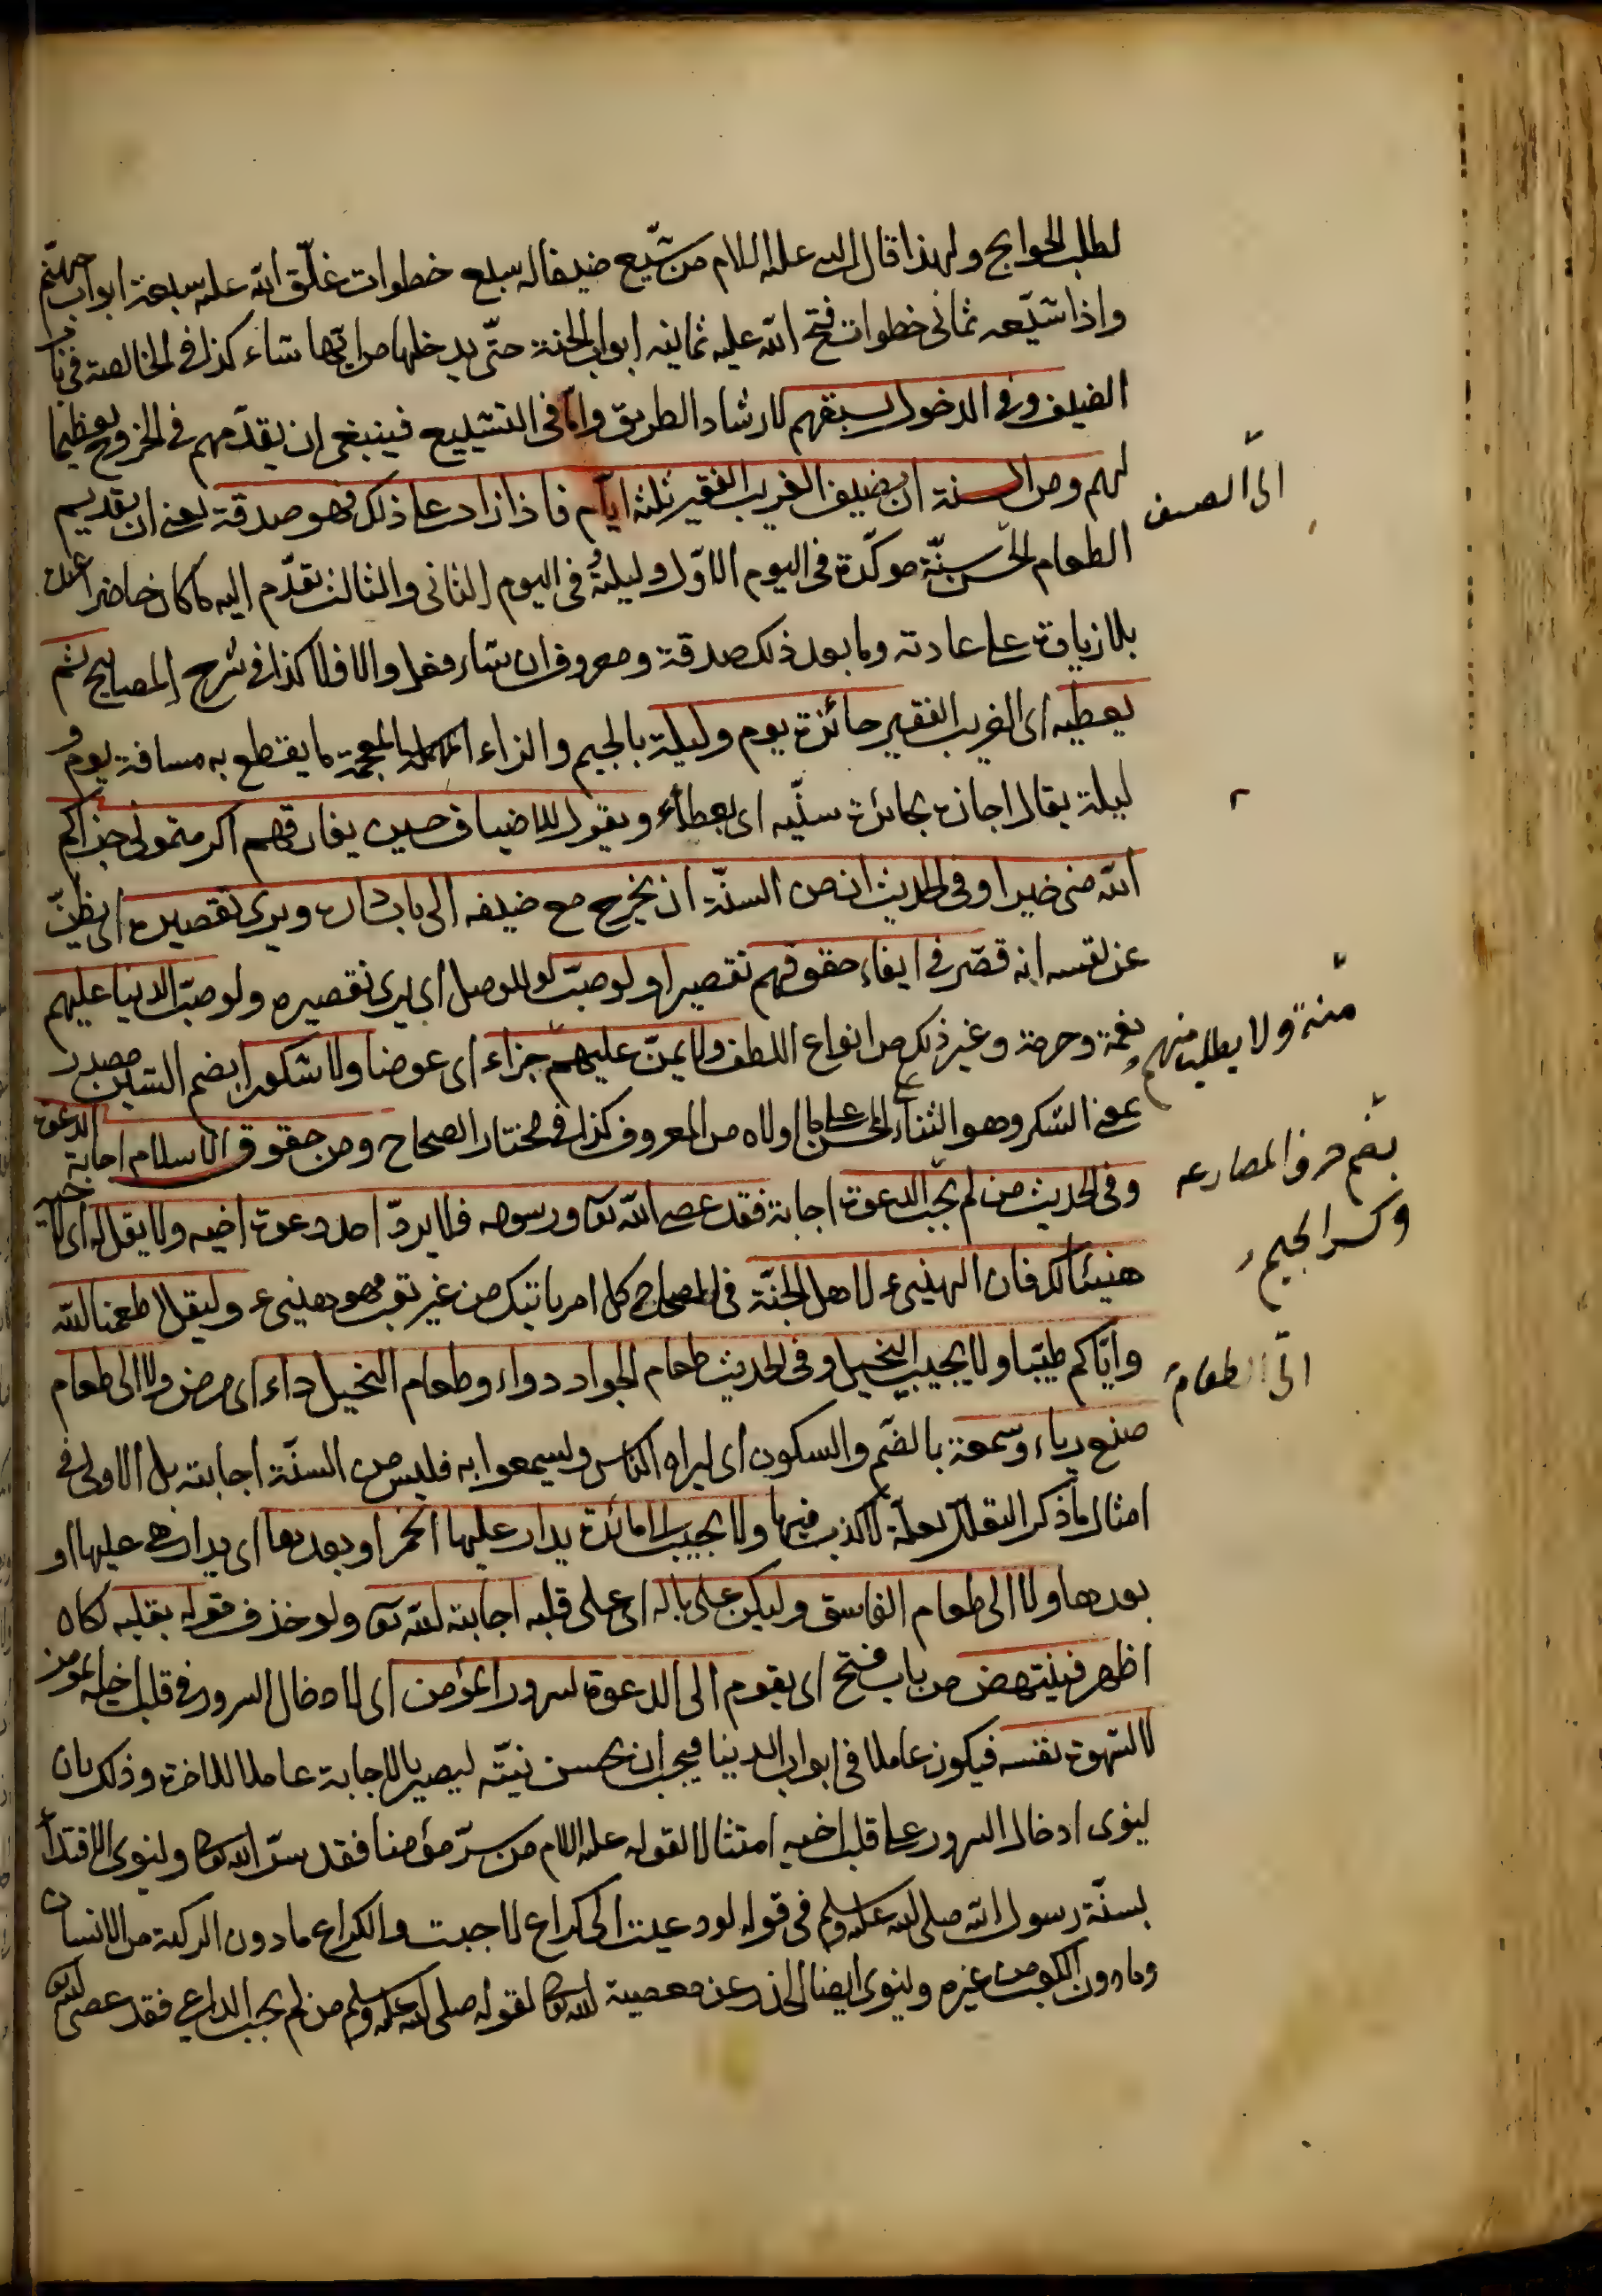 لطلب الحوايج ولهذا قال النبى عليه السلام من شيّع ضيفا له سبع خطوات غلّق الله عليه سبعة ابواب جهنّم
واذا شيّعه ثمانى خطوات فتح الله عليه ثمانيه ابواب الجنة حتّى يدخلها من ايّها شاء كذا فى الخالصة فى
الضيف وفى الدخول يسبقهم لارشاد الطريق وامّا فى التشييع فينبغى ان يقدّمهم فى الخروج تعظيما
لهم ومن السنة ان يضيف الغريب الفقير ثلثة ايّام فاذا زاد على ذلك فهو صدقة يعنى ان تقديم
الى الضيف
الطعام الحسن سنّة موكّدة فى اليوم الاوّل وليلته وفى اليوم الثانى والثالث يقدّم اليه ما كان حاضرا عنده
بلا زيادة على عادته وما بعد ذلك صدقة ومعروف ان شاء فعل والا فلا كذا فى شرح المصابيح ثم
يعطيه اى الغريب الفقير جائزة يوم وليلة بالجيم والزاء المعجمة ما يقتطع به مسافة يوم و
ليلة يقال اجازه بجائزة سنّيه اى بعطاء ويقول للاضياف حين يفارقهم اكرمتمونى جزاكم
الله منى خيرا وفى الحديث ان من السنّة ان يخرج مع ضيفه الى باب داره ويرى تقصيره اى يظنّ
عن نفسه انه قصّر فى ايفاء حقوقهم تقصيرا ولو صبّ لو للوصل اى يرى تقصيره ولو صبّ الدنيا عليهم
نعمة وحرمة وغير ذلك من انواع اللطف ولا يمنّ عليهم جزاء اى عوضا ولا شكورا بضم الشين مصدر
منة ولا يطلب منهم
بمعنى الشكر وهو الثناء على المحسن بما اولاه من المعروف كذا فى مختار الصحاح ومن حقوق الاسلام اجابة الدعوة
وفى الحديث من لم يجب الدعوة اجابة فقد عصى الله تعا ورسوله فلا يردّ احد دعوة اخيه ولا يقل له اى
بضم حرف المضارعه
وكسر الجيم
هنيئا لك فان الهنيىء لاهل الجنّة فى المصباح كل امر ياتيك من غير تعب فهو هنيىء وليقل اطعمنا الله
وايّاكم طيّبا ولا يجيب البخيل وفى الحديث طعام الجواد دواء وطعام البخيل داء اى مرض ولا الى طعام
الى الطعام
صنع رياء وسمعة بالضّم والسكون اى ليراه الناس وليسمعوا به فليس من السنّة اجابته بل الاولى فى
امثال ما ذكر التعلل بعلّة لا كذب فيها ولا يجيب الى مائدة يدار عليها الخمر او بعدها اى يدار هى عليها او
بعدها ولا الى طعام الفاسق وليكن على باله اى على قلبه اجابته لله تعا ولو حذف قوله بقلبه لكان
اظهر فينتهض من باب فتح اى يقوم الى الدعوة لسرور المؤمن اى لادخال السرور فى قلب اخيه المؤمن
لا لشهوة نفسه فيكون عاملا فى ابواب الدنيا فيجب ان يحسن نيّته ليصير بالاجابة عاملا للاخرة وذلك بان
ينوى ادخال السرور على قلب اخيه امتثالا لقوله عليه السلام من سرّ مؤمنا فقد سرّ الله تعا وينوى الاقتداء
بسنّة رسول الله صلى الله عليه وسلم فى قوله لو دعيت الى كراع لاجبت والكراع ما دون الركبة من الانسان
وما دون الكعب من غيره وينوى ايضا الحذر عن معصية الله تعا لقوله صلى الله عليه وسلم من لم يجب الداعى فقد عصى الله تعا